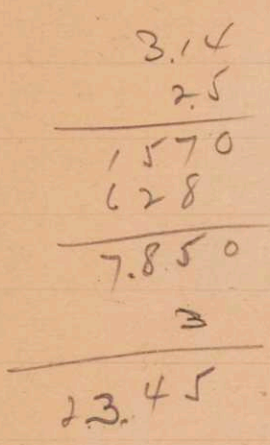 3.14
2.5
1570
628
7.850
3
23.45